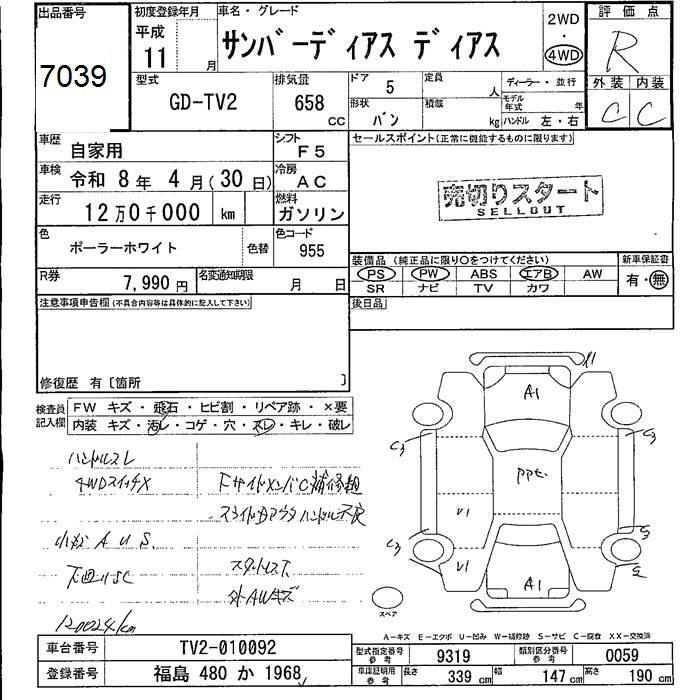 出品番号
7039
初度登録年月
平成
11 月
車名・グレード
サンバーディアス ディアス
2WD
・
4WD
評価点
R
外装 内装
C C
型式
GD-TV2
排気量
658 CC
ドア 5
定員 人
形状 バン
積載 kg
ディーラー・並行
モデル年式 年
ハンドル 左・右
車歴
自家用
シフト
F5
車検
令和 8年 4月(30日)
冷房
AC
走行
12万0千000 km
燃料
ガソリン
色
ポーラーホワイト
色替
色コード
955
R券
7,990円
名変通知期限
月 日
セールスポイント(正常に機能するものに限ります)
売切りスタート
SELLOUT
装備品(純正品に限り○をつけてください)
PS PW ABS エアB AW
SR ナビ TV カワ
新車保証書
有・無
後日品
注意事項申告欄(不具合内容等は具体的に記入して下さい)
修復歴 有〔箇所 〕
検査員記入欄
FW キズ・飛石・ヒビ割・リペア跡・×要
内装 キズ・汚レ・コゲ・穴・スレ・キレ・破レ
ハンドルスレ
4WDスイッチX
FサイドメンバC補修跡
スライドDアウタハンドル不良
小キズ A U S
下廻りSC
スタットレス
外AWキズ
120024km
A1
C3 C3
PPセ
U1
C3 S
U1 S
A1
スペア
A-キズ E-エクボ U-凹み W-補修跡 S-サビ C-腐食 XX-交換済
車台番号
TV2-010092
登録番号
福島 480 か 1968
型式指定番号
参考
9319
類別区分番号
参考
0059
車庫証明用
参考
長さ 339 cm
幅 147 cm
高さ 190 cm